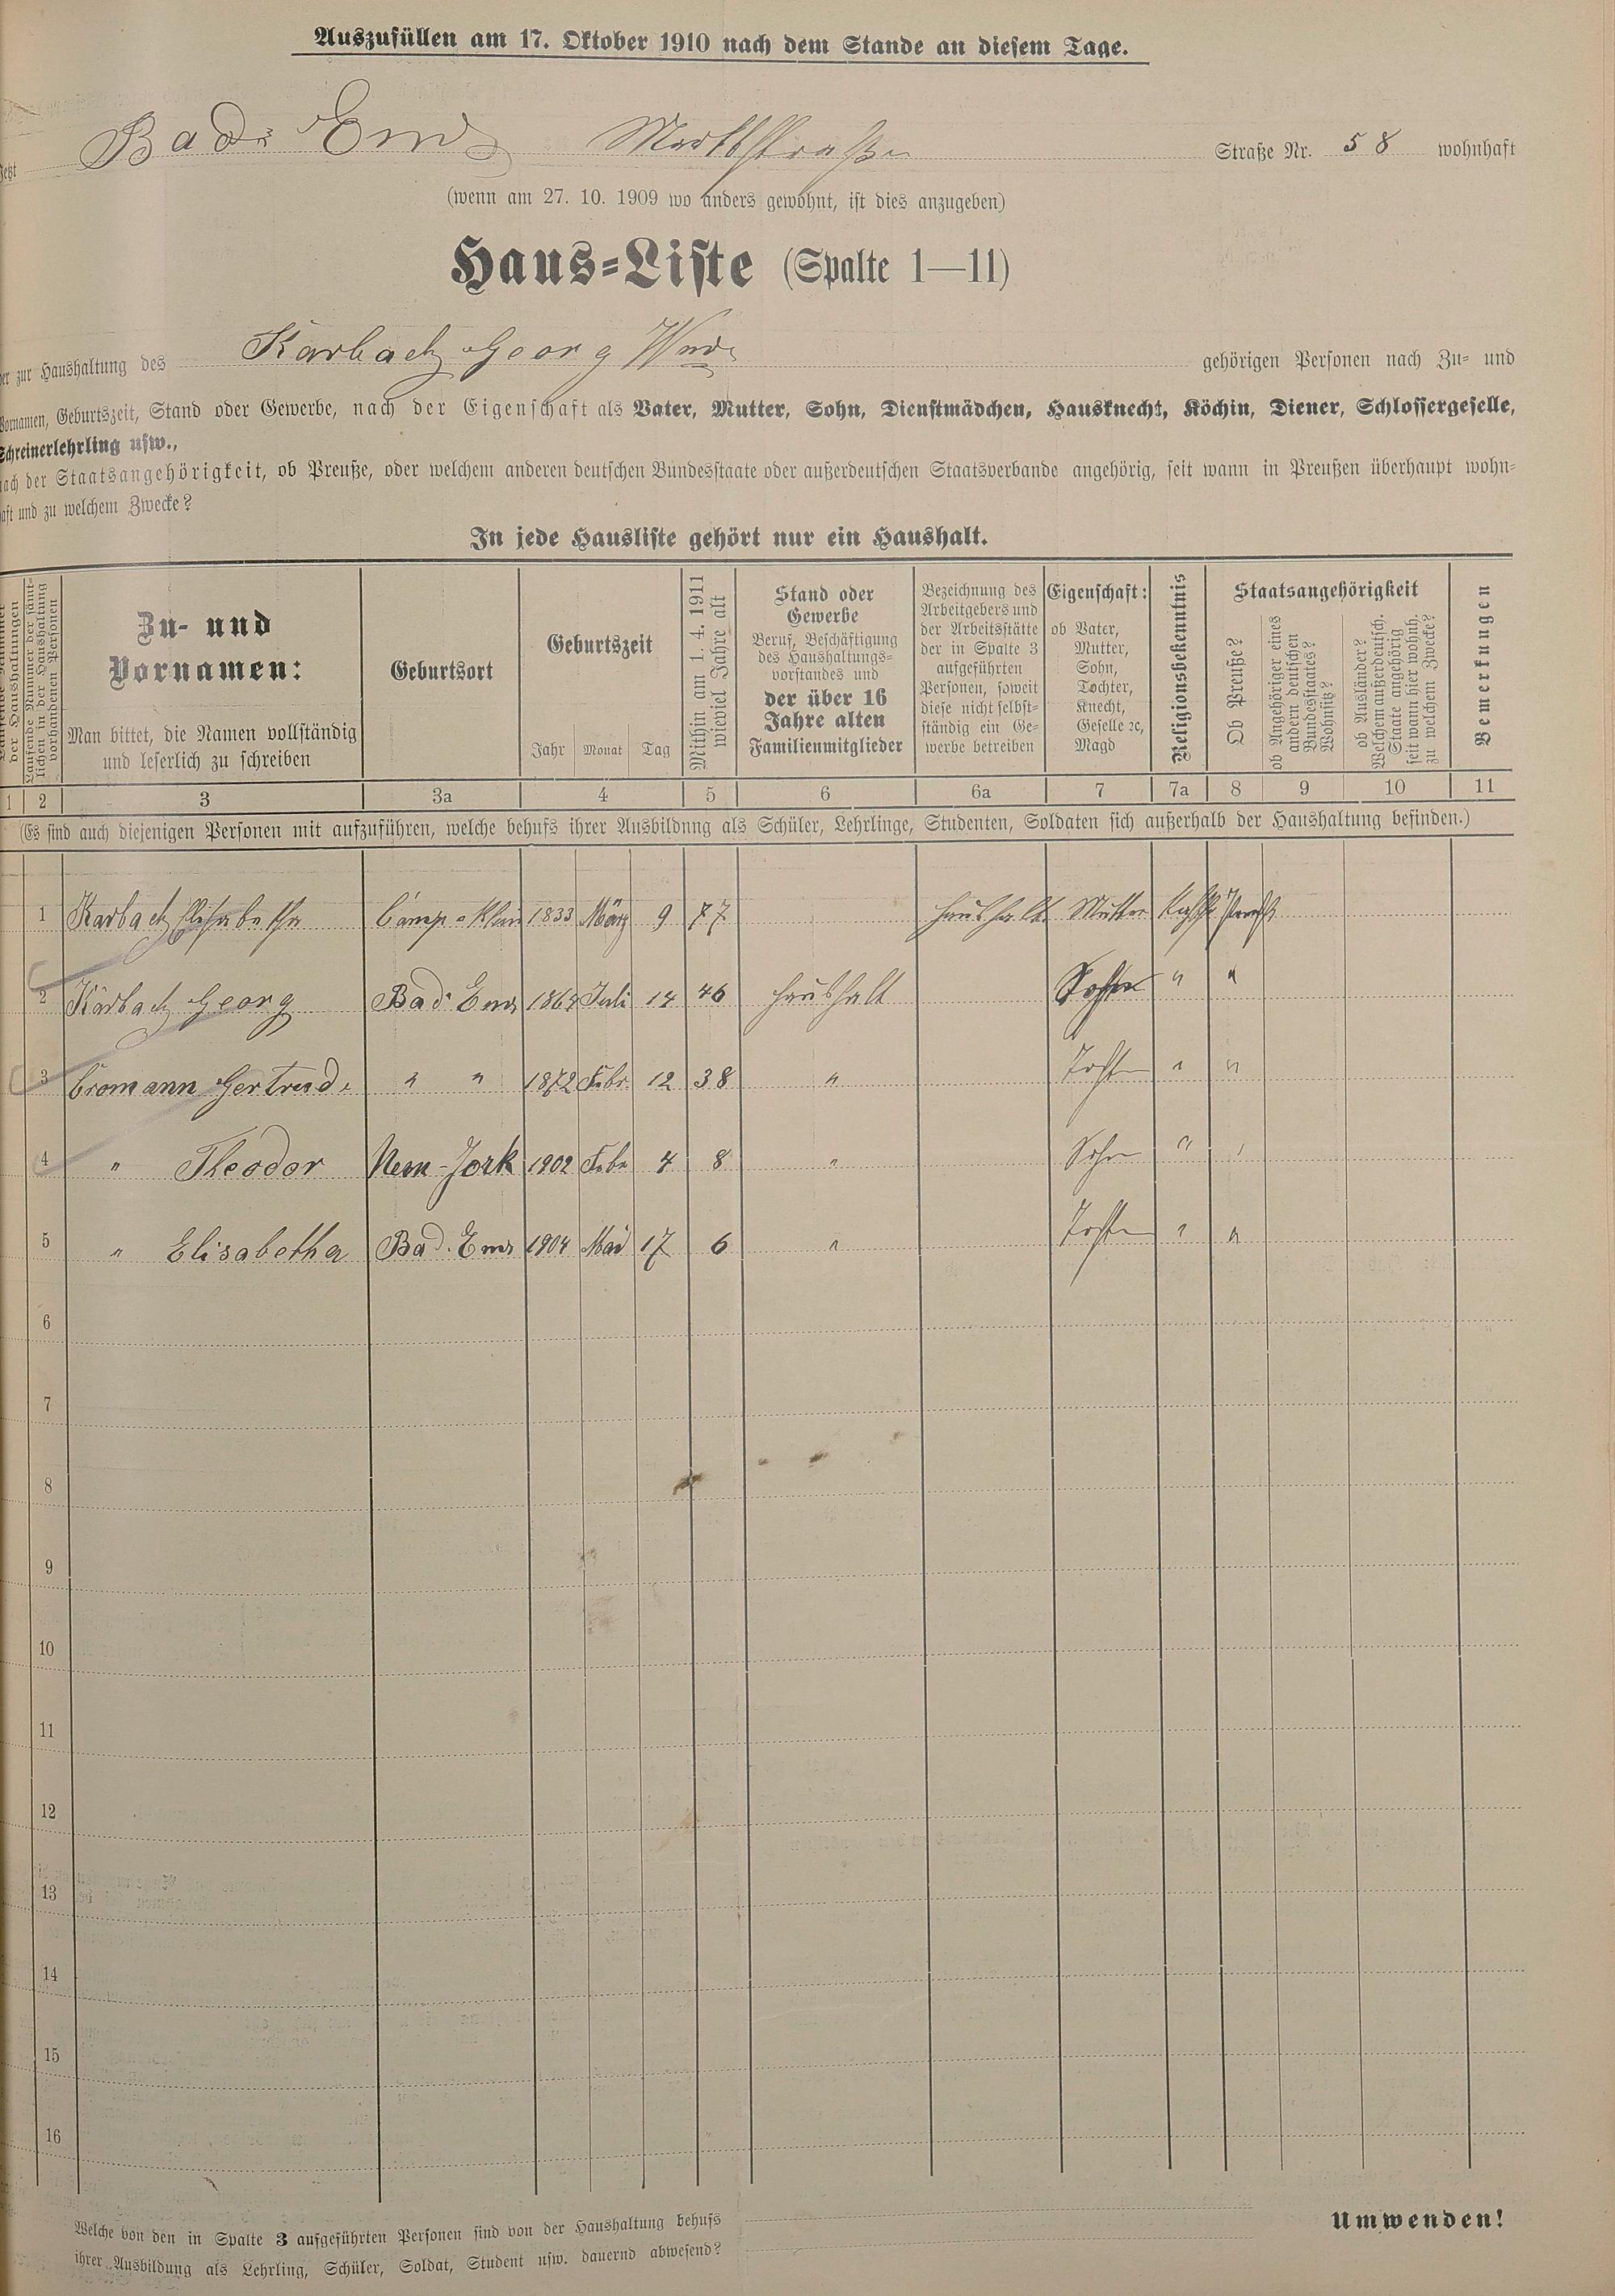 Auszufüllen am 17. Oktober 1910 nach dem Stande an diesem Tage.
Jetzt Bad Ems Marktstraße Straße Nr. 58 wohnhaft
(wenn am 27. 10. 1909 wo anders gewohnt, ist dies anzugeben)
Haus=Liste (Spalte 1—11)
der zur Haushaltung des Karbach Georg Wwe. gehörigen Personen nach Zu= und
Vornamen, Geburtszeit, Stand oder Gewerbe, nach der Eigenschaft als Vater, Mutter, Sohn, Dienstmädchen, Hausknecht, Köchin, Diener, Schlossergeselle,
Schreinerlehrling usw.,
nach der Staatsangehörigkeit, ob Preuße, oder welchem anderen deutschen Bundesstaate oder außerdeutschen Staatsverbande angehörig, seit wann in Preußen überhaupt wohn=
haft und zu welchem Zwecke?
In jede Hausliste gehört nur ein Haushalt.
der Haushaltungen
Laufende Nummer der sämt=
lichen in der Haushaltung
vorhandenen Personen
Zu- und
Vornamen:
Man bittet, die Namen vollständig
und leserlich zu schreiben
Geburtsort
Geburtszeit
Jahr Monat Tag
Mithin am 1. 4. 1911
wieviel Jahre alt
Stand oder
Gewerbe
Beruf, Beschäftigung
des Haushaltungs=
vorstandes und
der über 16
Jahre alten
Familienmitglieder
Bezeichnung des
Arbeitgebers und
der Arbeitsstätte
der in Spalte 3
aufgeführten
Personen, soweit
diese nicht selbst=
ständig ein Ge=
werbe betreiben
Eigenschaft:
ob Vater,
Mutter,
Sohn,
Tochter,
Knecht,
Geselle ꝛc,
Magd
Religionsbekenntnis
Staatsangehörigkeit
Ob Preuße?
ob Angehöriger eines
andern deutschen
Bundesstaates?
Wohnsitz?
ob Ausländer?
Welchem außerdeutsch.
Staate angehörig
seit wann hier wohnh.
zu welchem Zwecke?
Bemerkungen
1 2 3 3a 4 5 6 6a 7 7a 8 9 10 11
(Es sind auch diejenigen Personen mit aufzuführen, welche behufs ihrer Ausbildung als Schüler, Lehrlinge, Studenten, Soldaten sich außerhalb der Haushaltung befinden.)
1 Karbach Elisabetha 1833 März 9 77 Haushalt Mutter
2 Karbach Georg Bad Ems 1864 Juli 14 46 Haushalt " "
3 Cromann Gertrud " " 1872 Febr. 12 38 " Tochter " "
4 " Theodor New-Jork 1902 Febr 4 8 " Sohn " "
5 " Elisabetha Bad. Ems 1904 Mai 17 6 " Tochter " "
6
7
8
9
10
11
12
13
14
15
16
Welche von den in Spalte 3 aufgeführten Personen sind von der Haushaltung behufs
ihrer Ausbildung als Lehrling, Schüler, Soldat, Student usw. dauernd abwesend?
Umwenden!